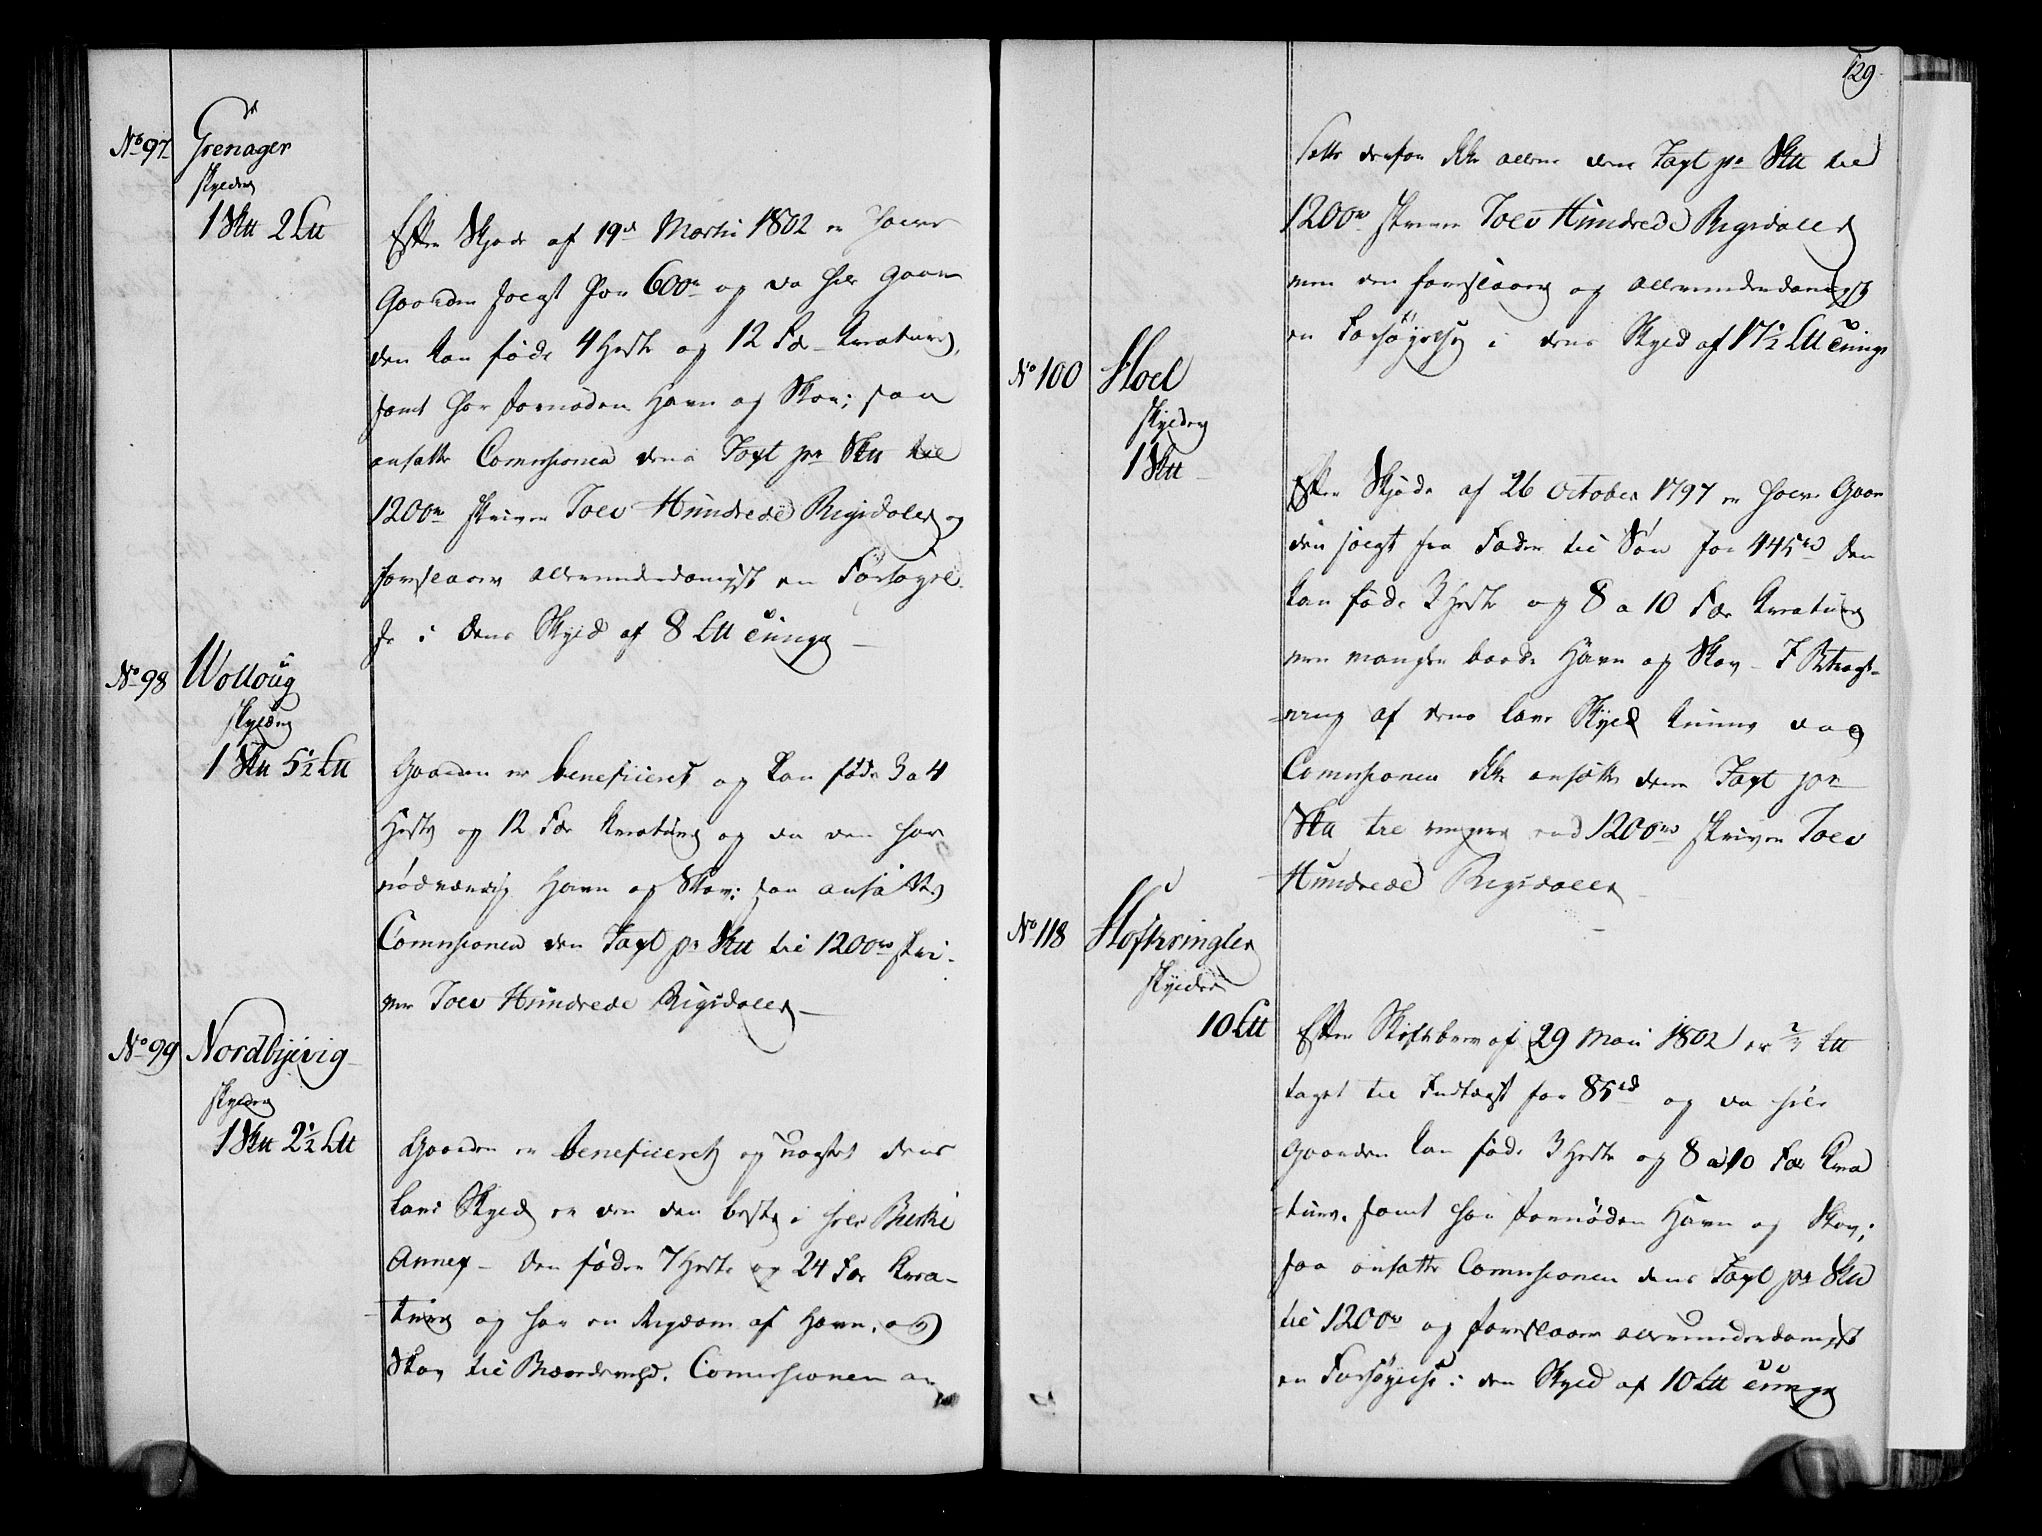 No 97
Grenager
skylder
1 Sku 2 Ltt
Efter Skjøde af 19de Martii 1802 er halve
Gaarden solgt for 600rd og da hele Gaar
den kan føde 4 Heste og 12 Fæ-Kreaturer,
samt har fornøden Havn og Skov; saa
ansatte Comissionen dens Taxt pr Sku til
1200rd skriver Tolv Hundrede Rigsdaler og
foreslaaer allerunderdanigst en Forhøyel-
se i dens Skyld af 8 Ltt tunge
No 98
Wolloug
skylder
1 Sku 5½ Ltt
Gaarden er beneficeret og kan føde 3 a 4
Heste og 12 Fæ Kreaturer og da den har
nødvændig Havn og Skov: saa ansættes
Comissionen den Taxt pr Sku til 1200rd skri-
ver Tolv Hundrede Rigsdaler
No 99
Nordbyevig
skylder
1 Sku 2½ Ltt
Gaarden er beneficeret og uagtet dens
lave Skyld er den den beste i hele
Annex - Den føder 7 Heste og 24 Fæ Krea-
turer og har en Rigdom af Havn, og
Skov til Brændeved. Comissionen an
129
satte derfor ikke allene dens Taxt pr Sku til
1200rd skriver Tolv Hundrede Rigsdaler
men den foreslaaer og allerunderdanigst
en Forhøyelse i dens Skyld af 17½ Ltt tunge
No 100
Hoel
skylder
1 Sku
Efter Skjøde af 26 October 1797 er halve Gaar
den solgt fra Fader til Søn for 445rd den
kan føde 3 Heste og 8 a 10 Fæ Kreaturer
men mangler baade Havn og Skov - I Betragt-
ning af dens lave Skyld kunne dog
Comissionen ikke ansætte dens Taxt pr
Sku til ringere end 1200rd skriver Tolv
Hundrede Rigsdaler
No 118
Hofsringler
skylder
10 Ltt
Efter Skiftebrev af 29 Mai 1802 er Ltt
taget til Indtægt for 85rd og da hele
Gaarden kan føde 3 Heste og 8 a 10 Fæ Krea
turer. samt har fornøden Havn og Skov;
saa ansatte Comissionen dens Taxt pr Sku
til 1200rd og foreslaaer allerunderdanigst
en Forhøyelse i den Skyld af 10 Ltt tunge